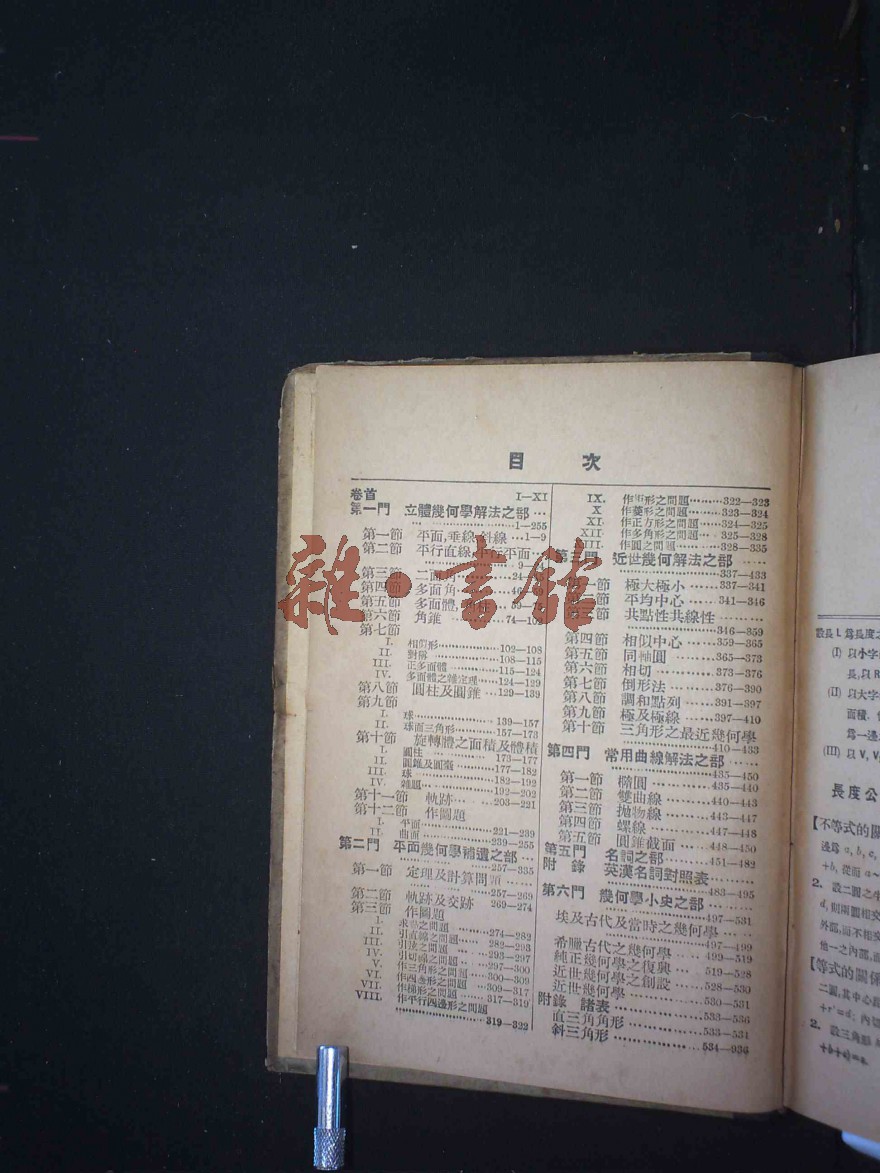 目 次
卷首 I—XI
第一門 立體幾何學解法之部 …
1—255
第一節 平面,垂線,斜線 …1—9
第二節 平行直線,平行平面
9—
第三節 二面角 24—
第四節 多面角 46
第五節 多面體, 59—7
第六節 角錐 74—10
第七節
I. 相似形 102—108
II. 對稱 108—115
III. 正多面體 115—124
IV. 多面體之雜定理 124—129
第八節 圓柱及圓錐 129—139
第九節
I. 球 139—157
II. 球面三角形 157—173
第十節 旋轉體之面積及體積
I. 圓柱 173—177
II. 圓錐及圓臺 177—182
III. 球 182—192
IV. 雜題 192—202
第十一節 軌跡 203—221
第十二節 作圖題
I. 平面 221—239
II. 曲面 239—255
第二門 平面幾何學補遺之部 …
257—335
第一節 定理及計算問題
257—269
第二節 軌跡及交跡 269—274
第三節 作圖題
I. 求點之問題 274—282
II. 引直線之問題 282—293
III. 之問題 293—297
IV. 引切線之問題 297—300
V. 作三角形之問題 300—309
VI. 作四邊形之問題 309—317
VII. 作梯形之問題 317—319
VIII. 作平行四邊形之問題
319—322
IX. 作矩形之問題 322—323
X 作菱形之問題 323—324
XI. 作正方形之問題 324—325
XII. 作多角形之問題 325—328
XIII. 作圓之問題 328—335
第三門 近世幾何解法之部
337—433
第一節 極大極小 337—341
第二節 平均中心 341—346
第三節 共點性共線性
346—359
第四節 相似中心 359—365
第五節 同軸圓 365—373
第六節 相切 373—376
第七節 倒形法 376—390
第八節 調和點列 391—397
第九節 極及極線 397—410
第十節 三角形之最近幾何學
410—433
第四門 常用曲線解法之部
435—450
第一節 橢圓 435—440
第二節 雙曲線 440—443
第三節 拋物線 443—447
第四節 螺線 447—448
第五節 圓錐截面 448—450
第五門 名詞之部 451—482
附 錄 英漢名詞對照表
483—495
第六門 幾何學小史之部
497—531
埃及古代及當時之幾何學
497—499
希臘古代之幾何學 499—519
純正幾何學之復興 519—528
近世幾何學之創設 528—530
近世幾何學 530—531
附錄 諸表 533—536
直三角角形 533—531
斜三角形 534—936
雜·書館
設長 l. 爲長度之
(I) 以小字
長,以 R
(II) 以大字
面積,
爲一邊
(III) 以 V, V
長度公
【不等式的關
邊爲 a, b, c,
+b, 從而 a~
2. 設二圓之
d, 則兩圓相交
外部,而不相交
他一之內部,
【等式的關係
二圓,其中心
+r'=d; 內切
2. 設三角形